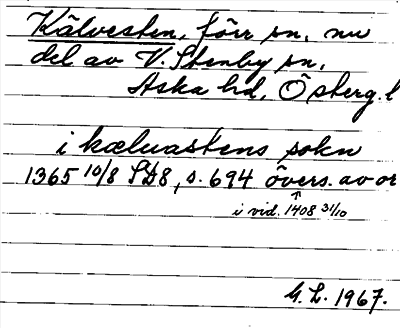 Kälvesten, förr sn, nu
del av V. Stenby sn,
Aska hd, Österg. l
i kæluastens sokn
1365 10/8 SD8, s. 694 övers. av or
i vid. 1408 31/10
G. L. 1967.